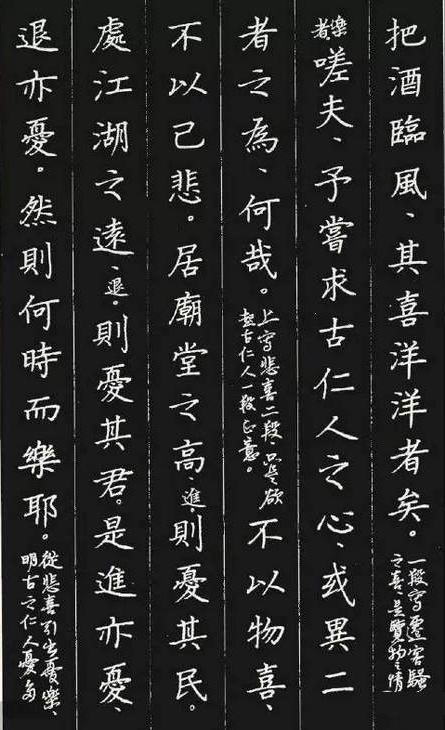 把酒臨風、其喜洋洋者矣。一段寫遷客騷之喜是覽物之情
樂者嗟夫、予嘗求古仁人之心、或異二
者之為、何哉。上寫悲喜二段、只是欲起古仁人一段正意。不以物喜、
不以己悲。居廟堂之高、進、則憂其民。
處江湖之遠、退、則憂其君。是進亦憂、
退亦憂。然則何時而樂耶。從悲喜引出憂樂、明古之仁人憂多